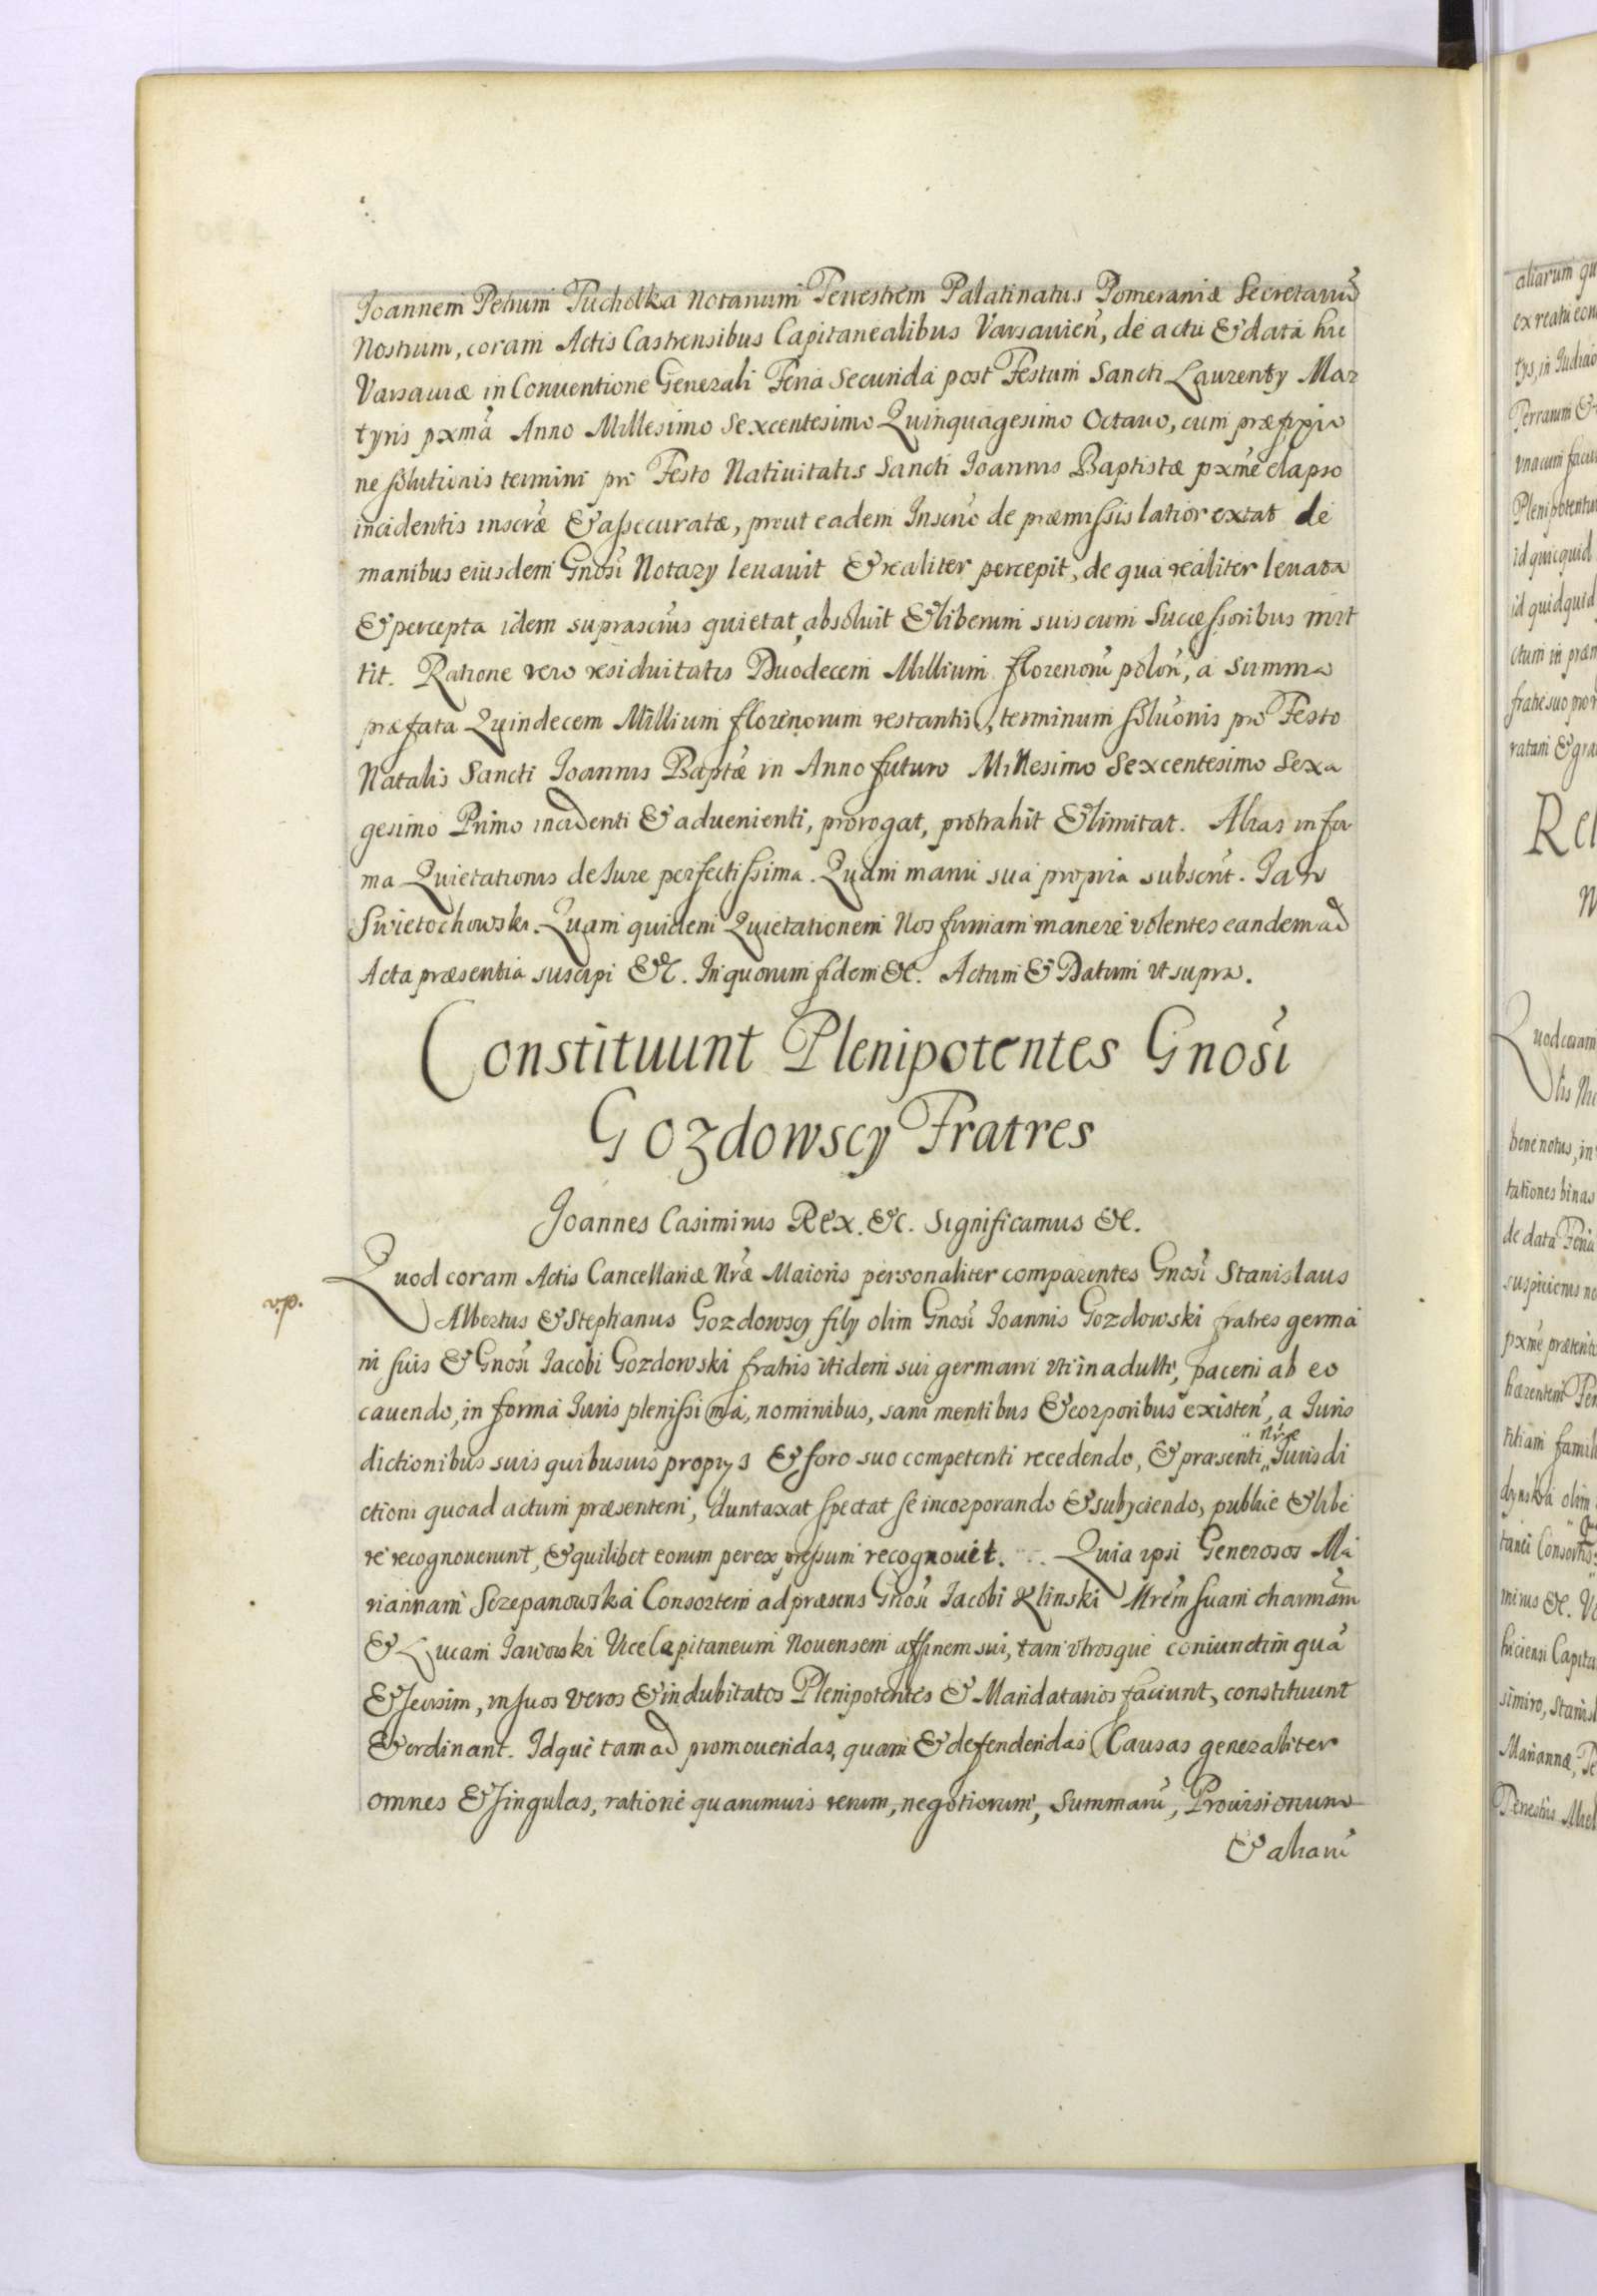 Joannem Petrum Tucholka Notarium Terrestrem Palatinatus Pomeraniæ Secretariũ
Nostrum, coram Actis Castrensibus Capitanealibus Varsavien̄, de actu & data hic
Varsaviæ in Conventione Generali Feria Secunda post Festum Sancti Laurentÿ Mar
tyris pxmã Anno Millesimo Sexcentesimo Quinquagesimo Octavo, cum præfixio
ne solutionis termini pro Festo Nativitatis Sancti Joannis Baptistæ pxmẽ elapso
incidentis inscr̃æ & assecuratæ, prout eadem Inscr̃io de præmissis latior extat de
manibus eiusdem Gnosi Notarÿ levavit & realiter percepit, de qua realiter levata
& percepta idem suprascr̃us quietat, absoluit & liberum suis cum Successoribus mit
tit. Ratione vero residuitatis Duodecem Millium florenorũ polon̄, a Summa
præfata Quindecem Millium florenorum restantis, terminum solũonis pro Festo
Natalis Sancti Joannis Baptæ in Anno futuro Millesimo Sexcentesimo Sexa
gesimo Primo incidenti & advenienti, prorogat, protrahit & limitat. Alias in for
ma Quietationis de Jure perfectissima. Quam manu sua propria subscr̃t. Jan
Swietochowski. Quam quidem Quietationem Nos firmam manere volentes eandem ad
Acta præsentia suscipi &c. In quorum fidem &c. Actum & Datum ut supra.
Constituunt Plenipotentes Gnosi
Gozdowscy Fratres
Joannes Casimirus Rex. &c. Significamus &c.
Quod coram Actis Cancellariæ Nr̃æ Maioris personaliter comparentes Gnosi Stanislaus
v.p.
Albertus & Stephanus Gozdowscy filÿ olim Gnosi Joannis Gozdowski fratres germa
ni suis & Gnosi Jacobi Gozdowski fratris itidem sui germani uti inadulti, pacem ab eo
cavendo, in forma Juris plenissima, nominibus, sani mentibus & corporibus existen̄, a Juris
dictionibus suis quibusuis proprÿs & foro suo competenti recedendo, & præsenti Nr̃æ Jurisdi
ctioni quoad actum præsentem, duntaxat spectat se incorporando & subÿciendo, publice & libe
re recognoverunt, & quilibet eorum per expressum recognovit. Quia ipsi Generosos Ma
riannam Sczepanowska Consortem ad præsens Gnosi Jacobi Klinski Mr̃em suam charm̃am
& Lucam Jawoski Vice Capitaneum Novensem affinem sui, tam utrosque coniunctim quã
& seorsim, in suos veros & indubitatos Plenipotentes & Mandatarios faciunt, constituunt
& ordinant. Idque tam ad promovendas, quam & defendendas Causas generaliter
omnes & singulas, ratione quarumvis rerum, negotiorum, Summarũ, Provisionum
& aliarũ